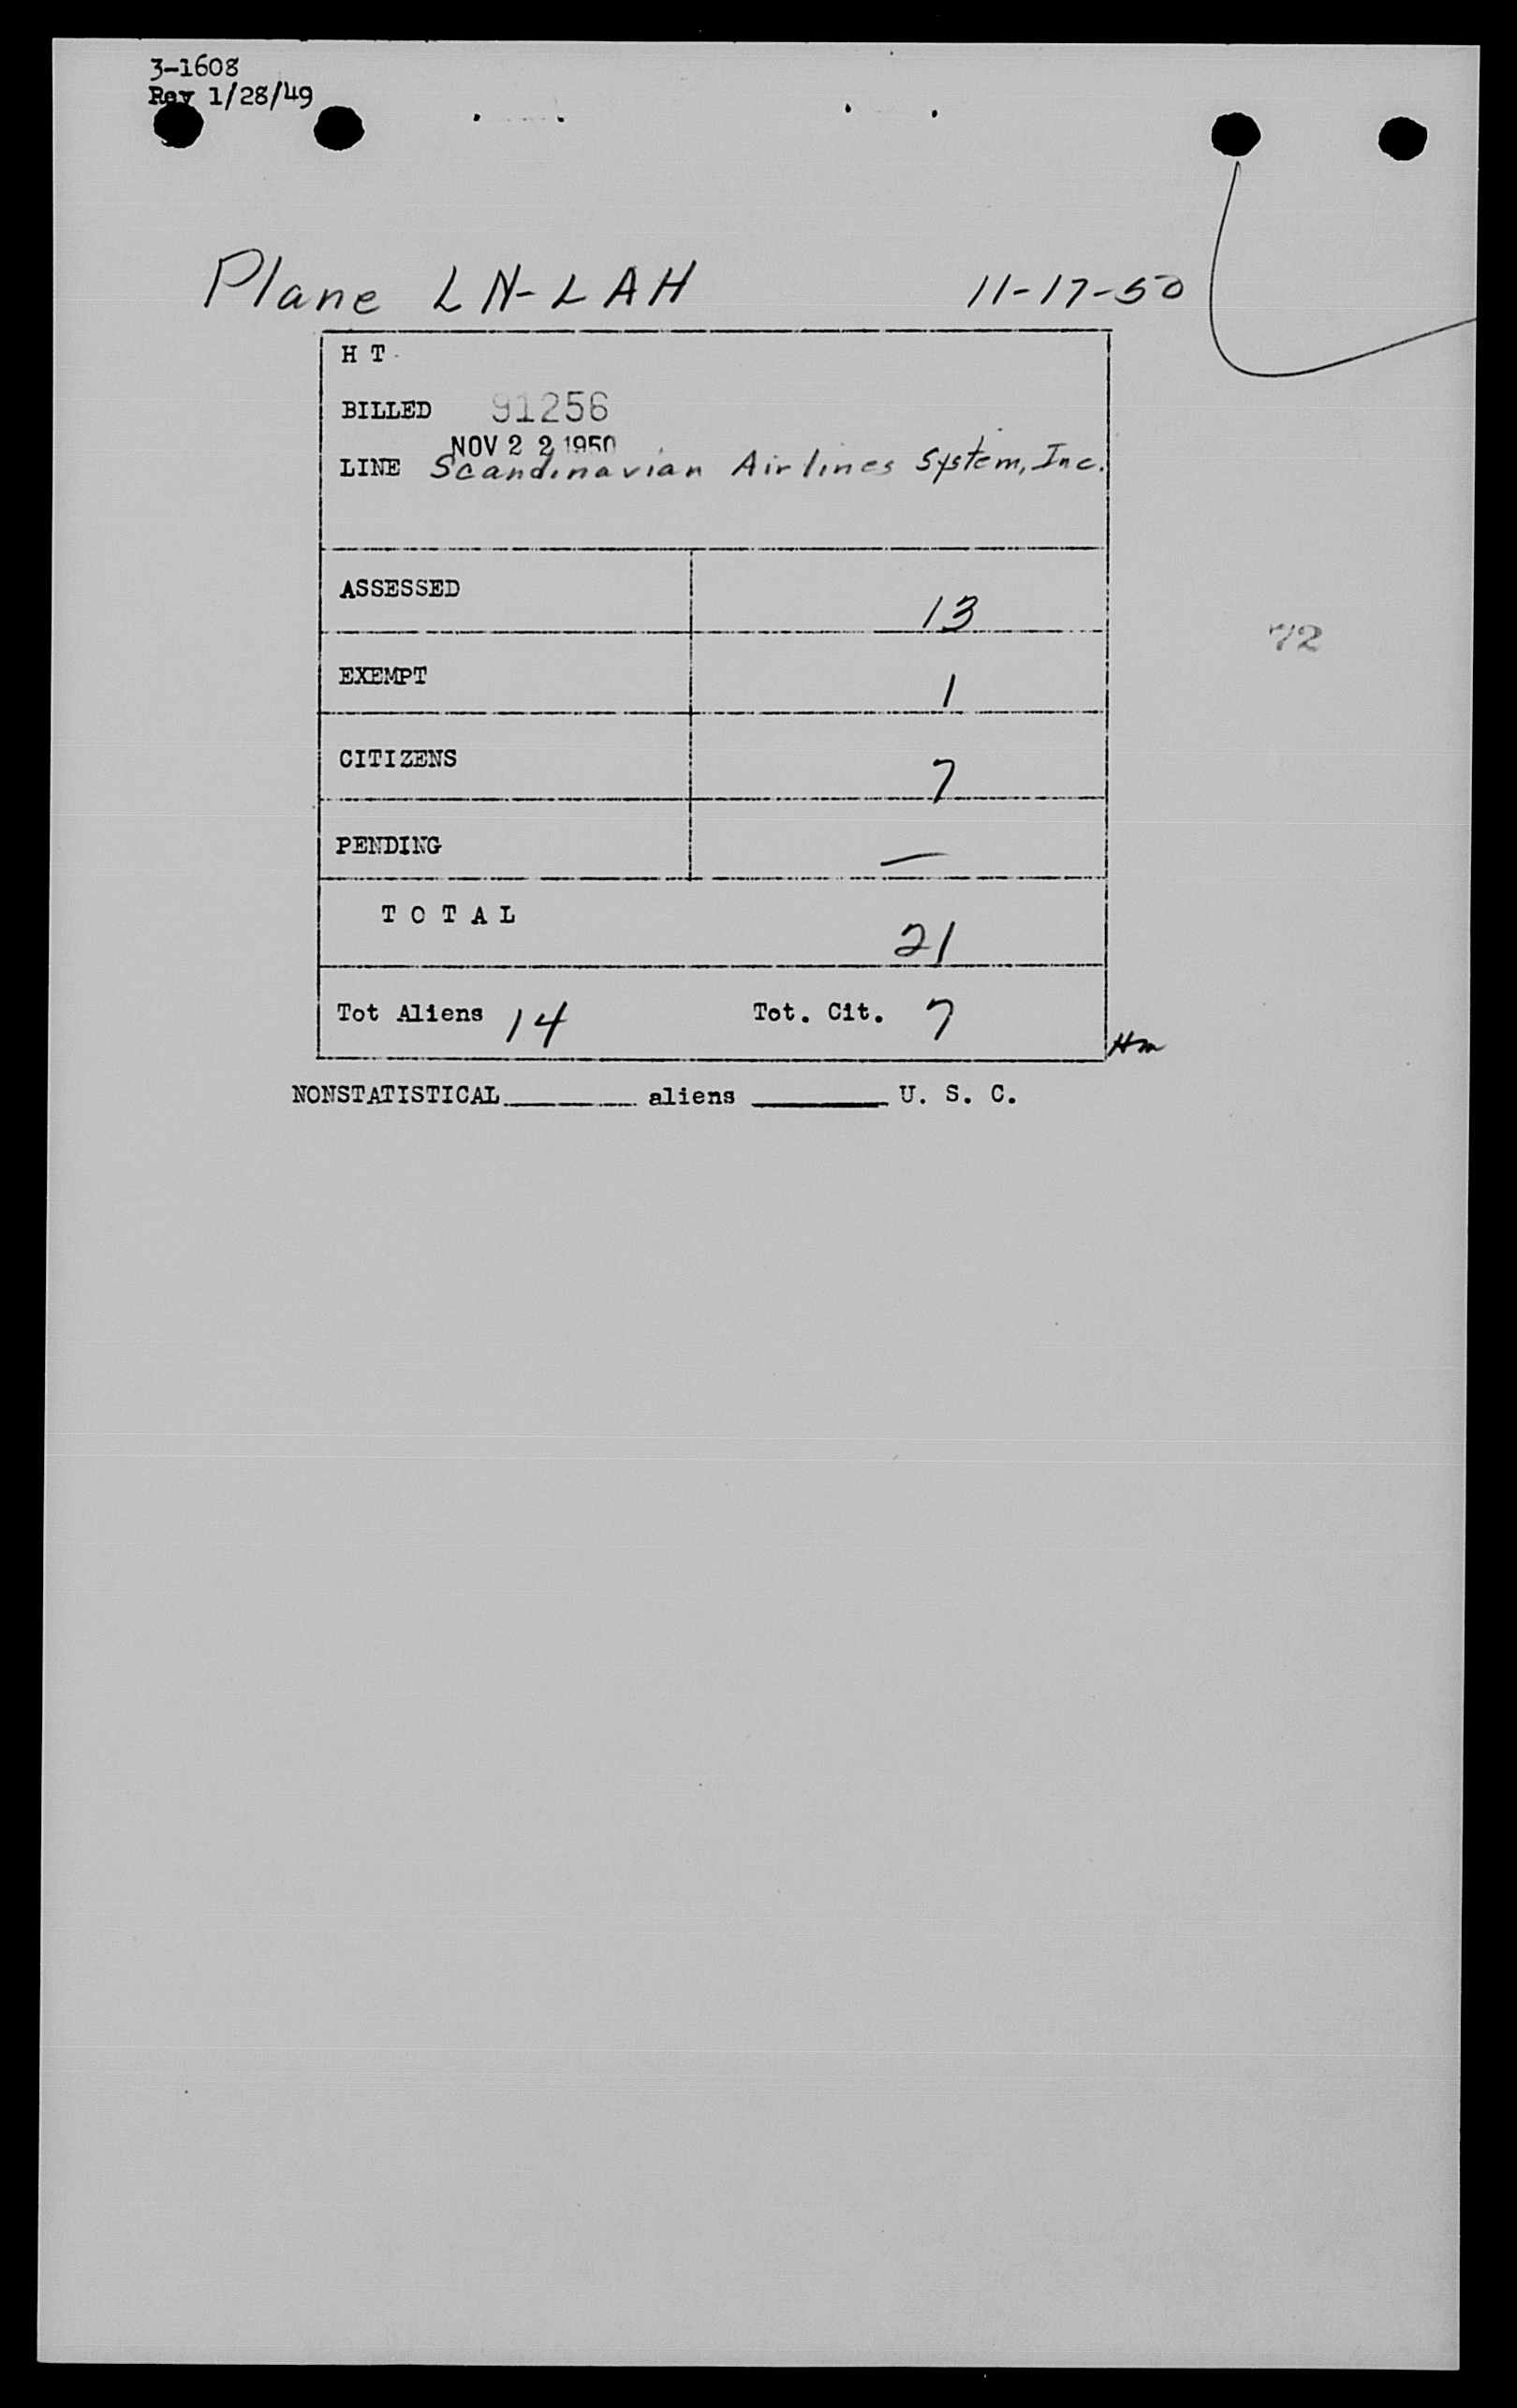 3-1608
Rev 1/28/49
Plane LN-LAH 11-17-50
H T
BILLED 91256
NOV 2 2 1950
LINE Scandinavian Airlines System, Inc.
ASSESSED 13
72
EXEMPT 1
CITIZENS 7
PENDING —
T O T A L 21
Tot Aliens 14 Tot. Cit. 7
Hm
NONSTATISTICAL______ aliens ______ U. S. C.